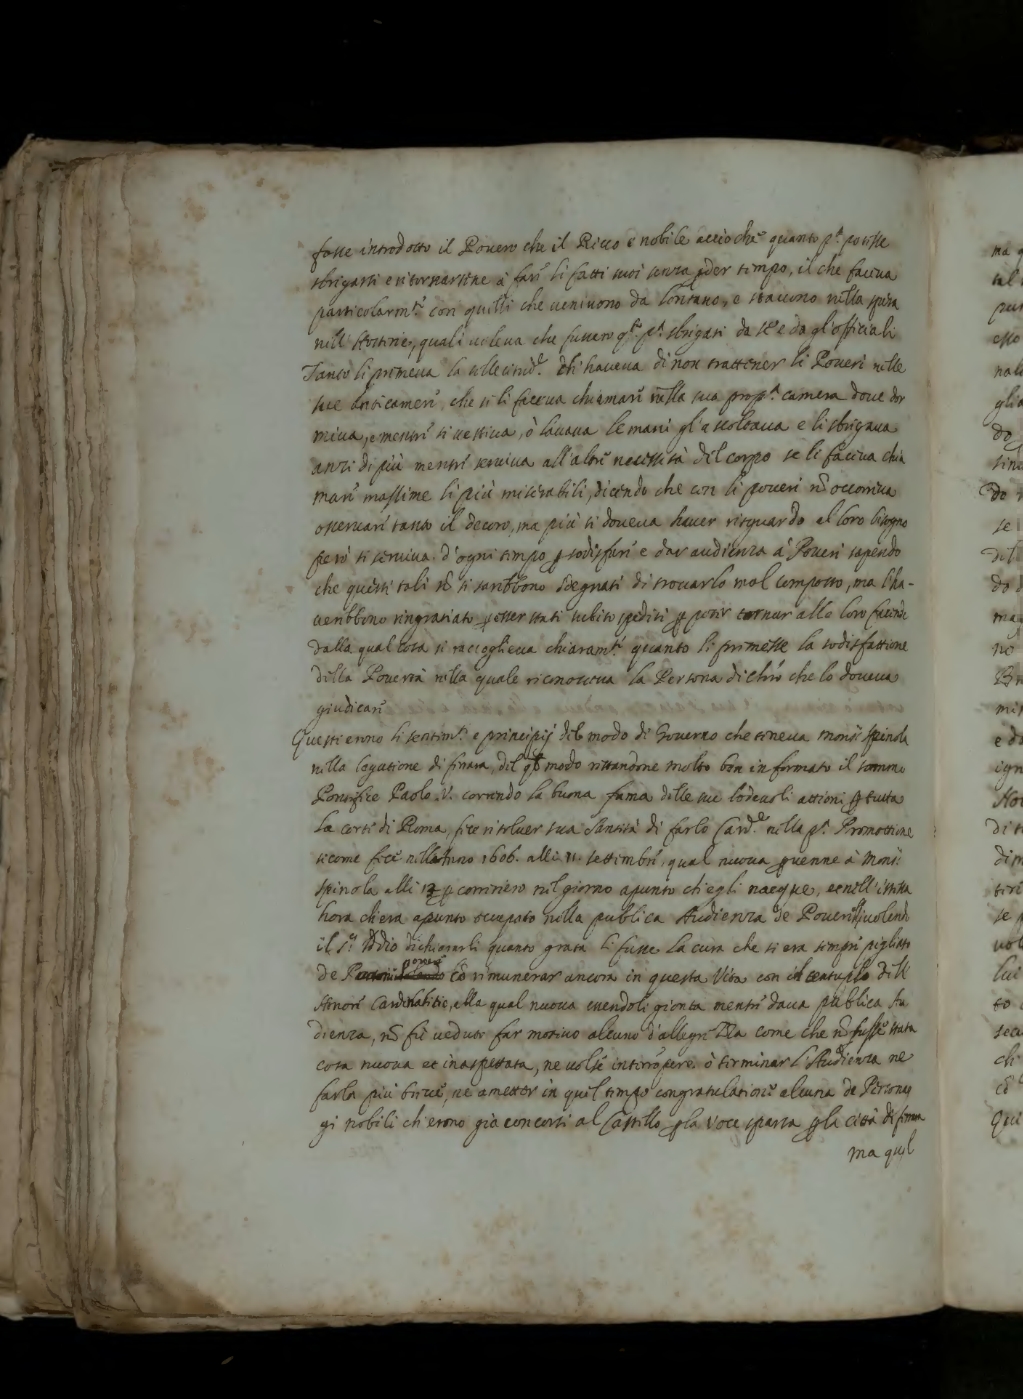 fosse introdotto il Povero che il Ricco e nobile accio che quanto p.ª potesse
sbrigarsi e ritornarsene à far li fatti suoi senza ꝑder tempo, il che faceva
particolarm.te con quelli che venivono da lontano, e stavono nella spesa
nell'Hosterie, quali voleva che fussero p.ª sbrigati da se e da gl'officiali
Tanto li premeva la sollecitud.e che haveva di non trattener li Poveri nelle
sue Anticamere, che se li faceva chiamare nella sua prop.ª camera dove dor
miva, e mentre si vestiva, ò lavava le mani gl'ascoltava e li sbrigava
anzi di più mentre serviva all'altre necessità del corpo se li faceva chia
mare massime li più miserabili, dicendo che con li poveri nõ occorreva
osservare tanto il decoro, ma più si doveva haver risguardo al loro bisogno
però si serviva d'ogni tempo ꝑ sodisfare e dar audienza à Poveri sapendo
che questi tali nõ si sarebbono sdegnati di trovarlo mal composto, ma l'ha-
verebbono ringratiato ꝑ esser stati subito spediti ꝑ poter tornar allo loro facende
dalla qual cosa si raccoglieva chiaram.te quanto li premesse la sodisfattione
della Povertà nella quale riconosceva la Persona di Chr̃o che lo doveva
giudicare
Questi erono li sentim.ti e principij del modo di Governo che teneva Mons.r Spinola
nella Legatione di Ferrara, del qual modo restandone molto ben informato il sommo
Pontefice Paolo V. correndo la buona fama delle sue lodevoli attioni ꝑ tutta
la corte di Roma, fece risolver sua Santità di farlo Card.le nella p.ª Promottione
sicome fece nell'Anno 1606. alli 11. settembre, qual nuova ꝑvenne à Mons.r
Spinola alli 13 ꝑ corriero nel giorno apunto ch'egli nacque, et nell'istessa
hora ch'era apunto occupato nella publica Audienza de Poveri, volendo
il S.r Iddio dichiararli quanto grata li fusse la cura che si era sempre pigliato
de Poveri cõ rimunerar ancora in questa Vita con il
honore Cardinalitio, alla qual nuova essendoli gionta mentre dava publica Au
dienza, nõ fu veduto far motivo alcuno d'allegrezza come che nõ fusse stata
cosa nuova et inaspettata, ne volse interrõpere ò terminar l'Audienza ne
farla più breve, ne ametter in quel tempo congratulatione alcuna de Persona
gi nobili ch'erono già concorsi al Castello ꝑ la Voce sparsa ꝑ la città di ferrara
ma quel